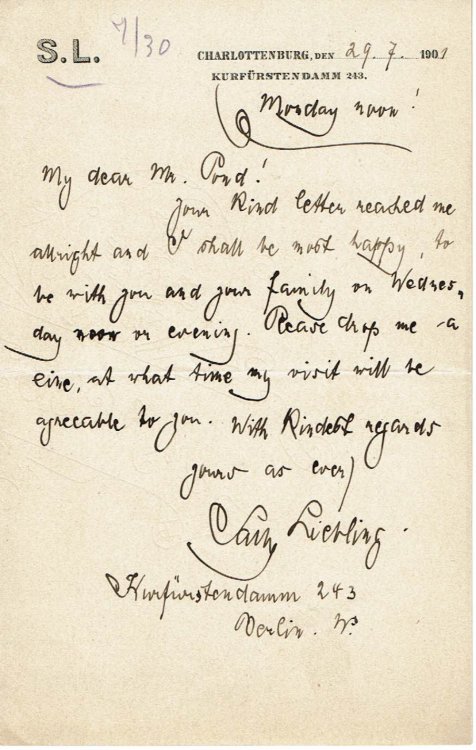 S.L. 7/30
CHARLOTTENBURG, DEN 29. 7. 1901
KURFÜRSTENDAMM 243.
Monday noon!
My dear Mr. Pond!
Your kind letter reached me
allright and I shall be most happy, to
be with you and your family on Wednes,
day noon or evening. Please drop me a
line, at what time my visit will be
agreeable to you. With kindest regards
yours as ever,
Sally Liebling.
Kurfürstendamm 243
Berlin. W.